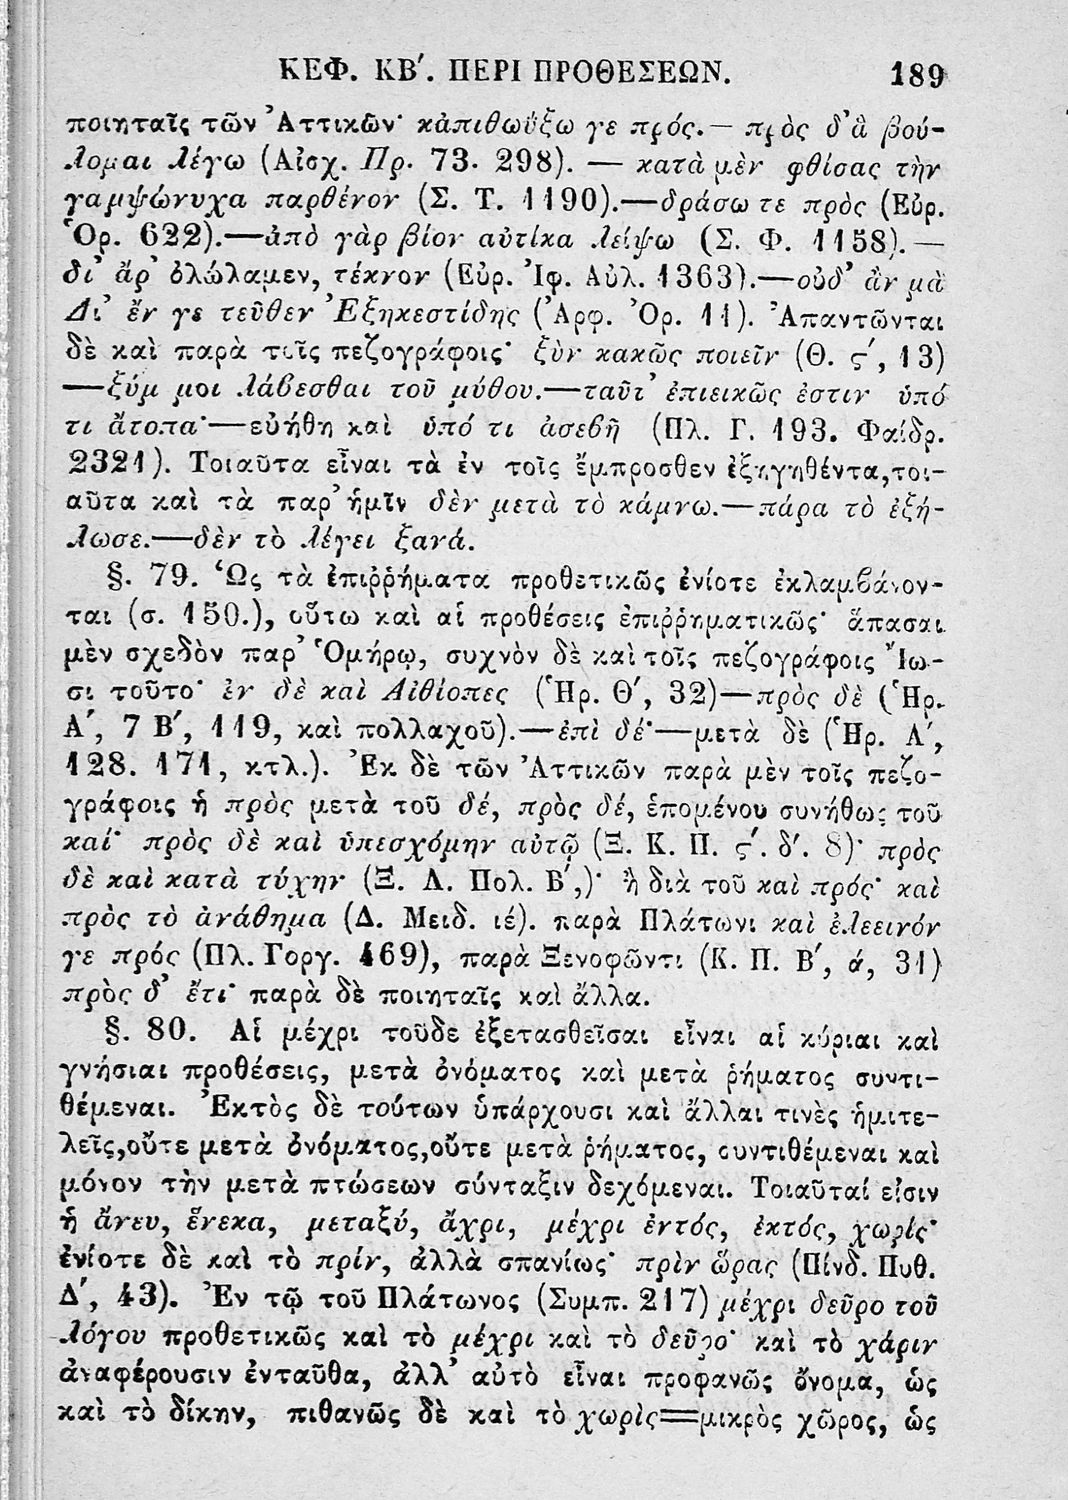 ΚΕΦ. ΚΒ′. ΠΕΡΙ ΠΡΟΘΕΣΕΩΝ. 189
ποιηταῖς τῶν Ἀττικῶν· κἀπιθωΰξω γε πρός.— πρὸς δ᾽ἃ βού-
λομαι λέγω (Αἰσχ. Πρ. 73. 298). — κατὰ μὲν φθίσας τὴν
γαμψώνυχα παρθένον (Σ. Τ. 1190).—δράσω τε πρὸς (Εὐρ.
Ὀρ. 622).—ἀπὸ γὰρ βίον αὐτίκα λείψω (Σ. Φ. 1158).—
δι᾽ ἄρ᾽ ὀλώλαμεν, τέκνον (Εὐρ. Ἰφ. Αὐλ. 1363).—οὐδ᾽ ἂν μὰ
Δι᾽ ἔν γε τεῦθεν Ἐξηκεστίδης (Ἀρφ. Ὀρ. 11). Ἀπαντῶνται
δὲ καὶ παρὰ τοῖς πεζογράφοις· ξὺν κακῶς ποιεῖν (Θ. ς′, 13)
—ξύμ μοι λάβεσθαι τοῦ μύθου.—ταῦτ᾽ ἐπιεικῶς ἐστιν ὑπό
τι ἄτοπα·—εὐήθη καὶ ὑπό τι ἀσεβῆ (Πλ. Γ. 193. Φαίδρ.
2321). Τοιαῦτα εἶναι τὰ ἐν τοῖς ἔμπροσθεν ἐξηγηθέντα,τοι-
αῦτα καὶ τὰ παρ᾽ ἡμῖν δὲν μετὰ τὸ κάμνω.—πάρα τὸ ἐξή-
λωσε.—δὲν τὸ λέγει ξανά.
§. 79. Ὡς τὰ ἐπιῤῥήματα προθετικῶς ἐνίοτε ἐκλαμβάνον-
ται (σ. 150.), οὕτω καὶ αἱ προθέσεις ἐπιῤῥηματικῶς· ἅπασαι
μὲν σχεδὸν παρ᾽ Ὁμήρῳ, συχνὸν δὲ καὶ τοῖς πεζογράφοις Ἴω-
σι τοῦτο· ἐν δὲ καὶ Αἰθίοπες (Ἡρ. Θ′, 32)—πρὸς δὲ (Ἡρ.
Α′, 7 Β′, 119, καὶ πολλαχοῦ).—ἐπὶ δέ·—μετὰ δὲ (Ἡρ. Α′,
128. 171, κτλ.). Ἐκ δὲ τῶν Ἀττικῶν παρὰ μὲν τοῖς πεζο-
γράφοις ἡ πρὸς μετὰ τοῦ δέ, πρὸς δέ, ἑπομένου συνήθως τοῦ
καί· πρὸς δὲ καὶ ὑπεσχόμην αὐτῷ (Ξ. Κ. Π. ς′. δ′. 8)· πρὸς
δὲ καὶ κατὰ τύχην (Ξ. Λ. Πολ. Β′,)· ἢ διὰ τοῦ καὶ πρός· καὶ
πρὸς τὸ ἀνάθημα (Δ. Μειδ. ιέ). παρὰ Πλάτωνι καὶ ἐλεεινόν
γε πρός (Πλ. Γοργ. 469), παρὰ Ξενοφῶντι (Κ. Π. Β′, ά, 31)
πρὸς δ᾽ ἔτι· παρὰ δὲ ποιηταῖς καὶ ἄλλα.
§. 80. Αἱ μέχρι τοῦδε ἐξετασθεῖσαι εἶναι αἱ κύριαι καὶ
γνήσιαι προθέσεις, μετὰ ὀνόματος καὶ μετὰ ῥήματος συντι-
θέμεναι. Ἐκτὸς δὲ τούτων ὑπάρχουσι καὶ ἄλλαι τινὲς ἡμιτε-
λεῖς,οὔτε μετὰ ὀνόματος,οὔτε μετὰ ῥήματος, συντιθέμεναι καὶ
μόνον τὴν μετὰ πτώσεων σύνταξιν δεχόμεναι. Τοιαῦταί εἰσιν
ἡ ἄνευ, ἕνεκα, μεταξύ, ἄχρι, μέχρι ἐντός, ἐκτός, χωρίς·
ἐνίοτε δὲ καὶ τὸ πρίν, ἀλλὰ σπανίως· πρὶν ὥρας (Πίνδ. Πυθ.
Δ′, 43). Ἐν τῷ τοῦ Πλάτωνος (Συμπ. 217) μέχρι δεῦρο τοῦ
λόγου προθετικῶς καὶ τὸ μέχρι καὶ τὸ δεῦρο· καὶ τὸ χάριν
ἀναφέρουσιν ἐνταῦθα, ἀλλ᾽ αὐτὸ εἶναι προφανῶς ὄνομα, ὡς
καὶ τὸ δίκην, πιθανῶς δὲ καὶ τὸ χωρὶς=μικρὸς χῶρος, ὡς